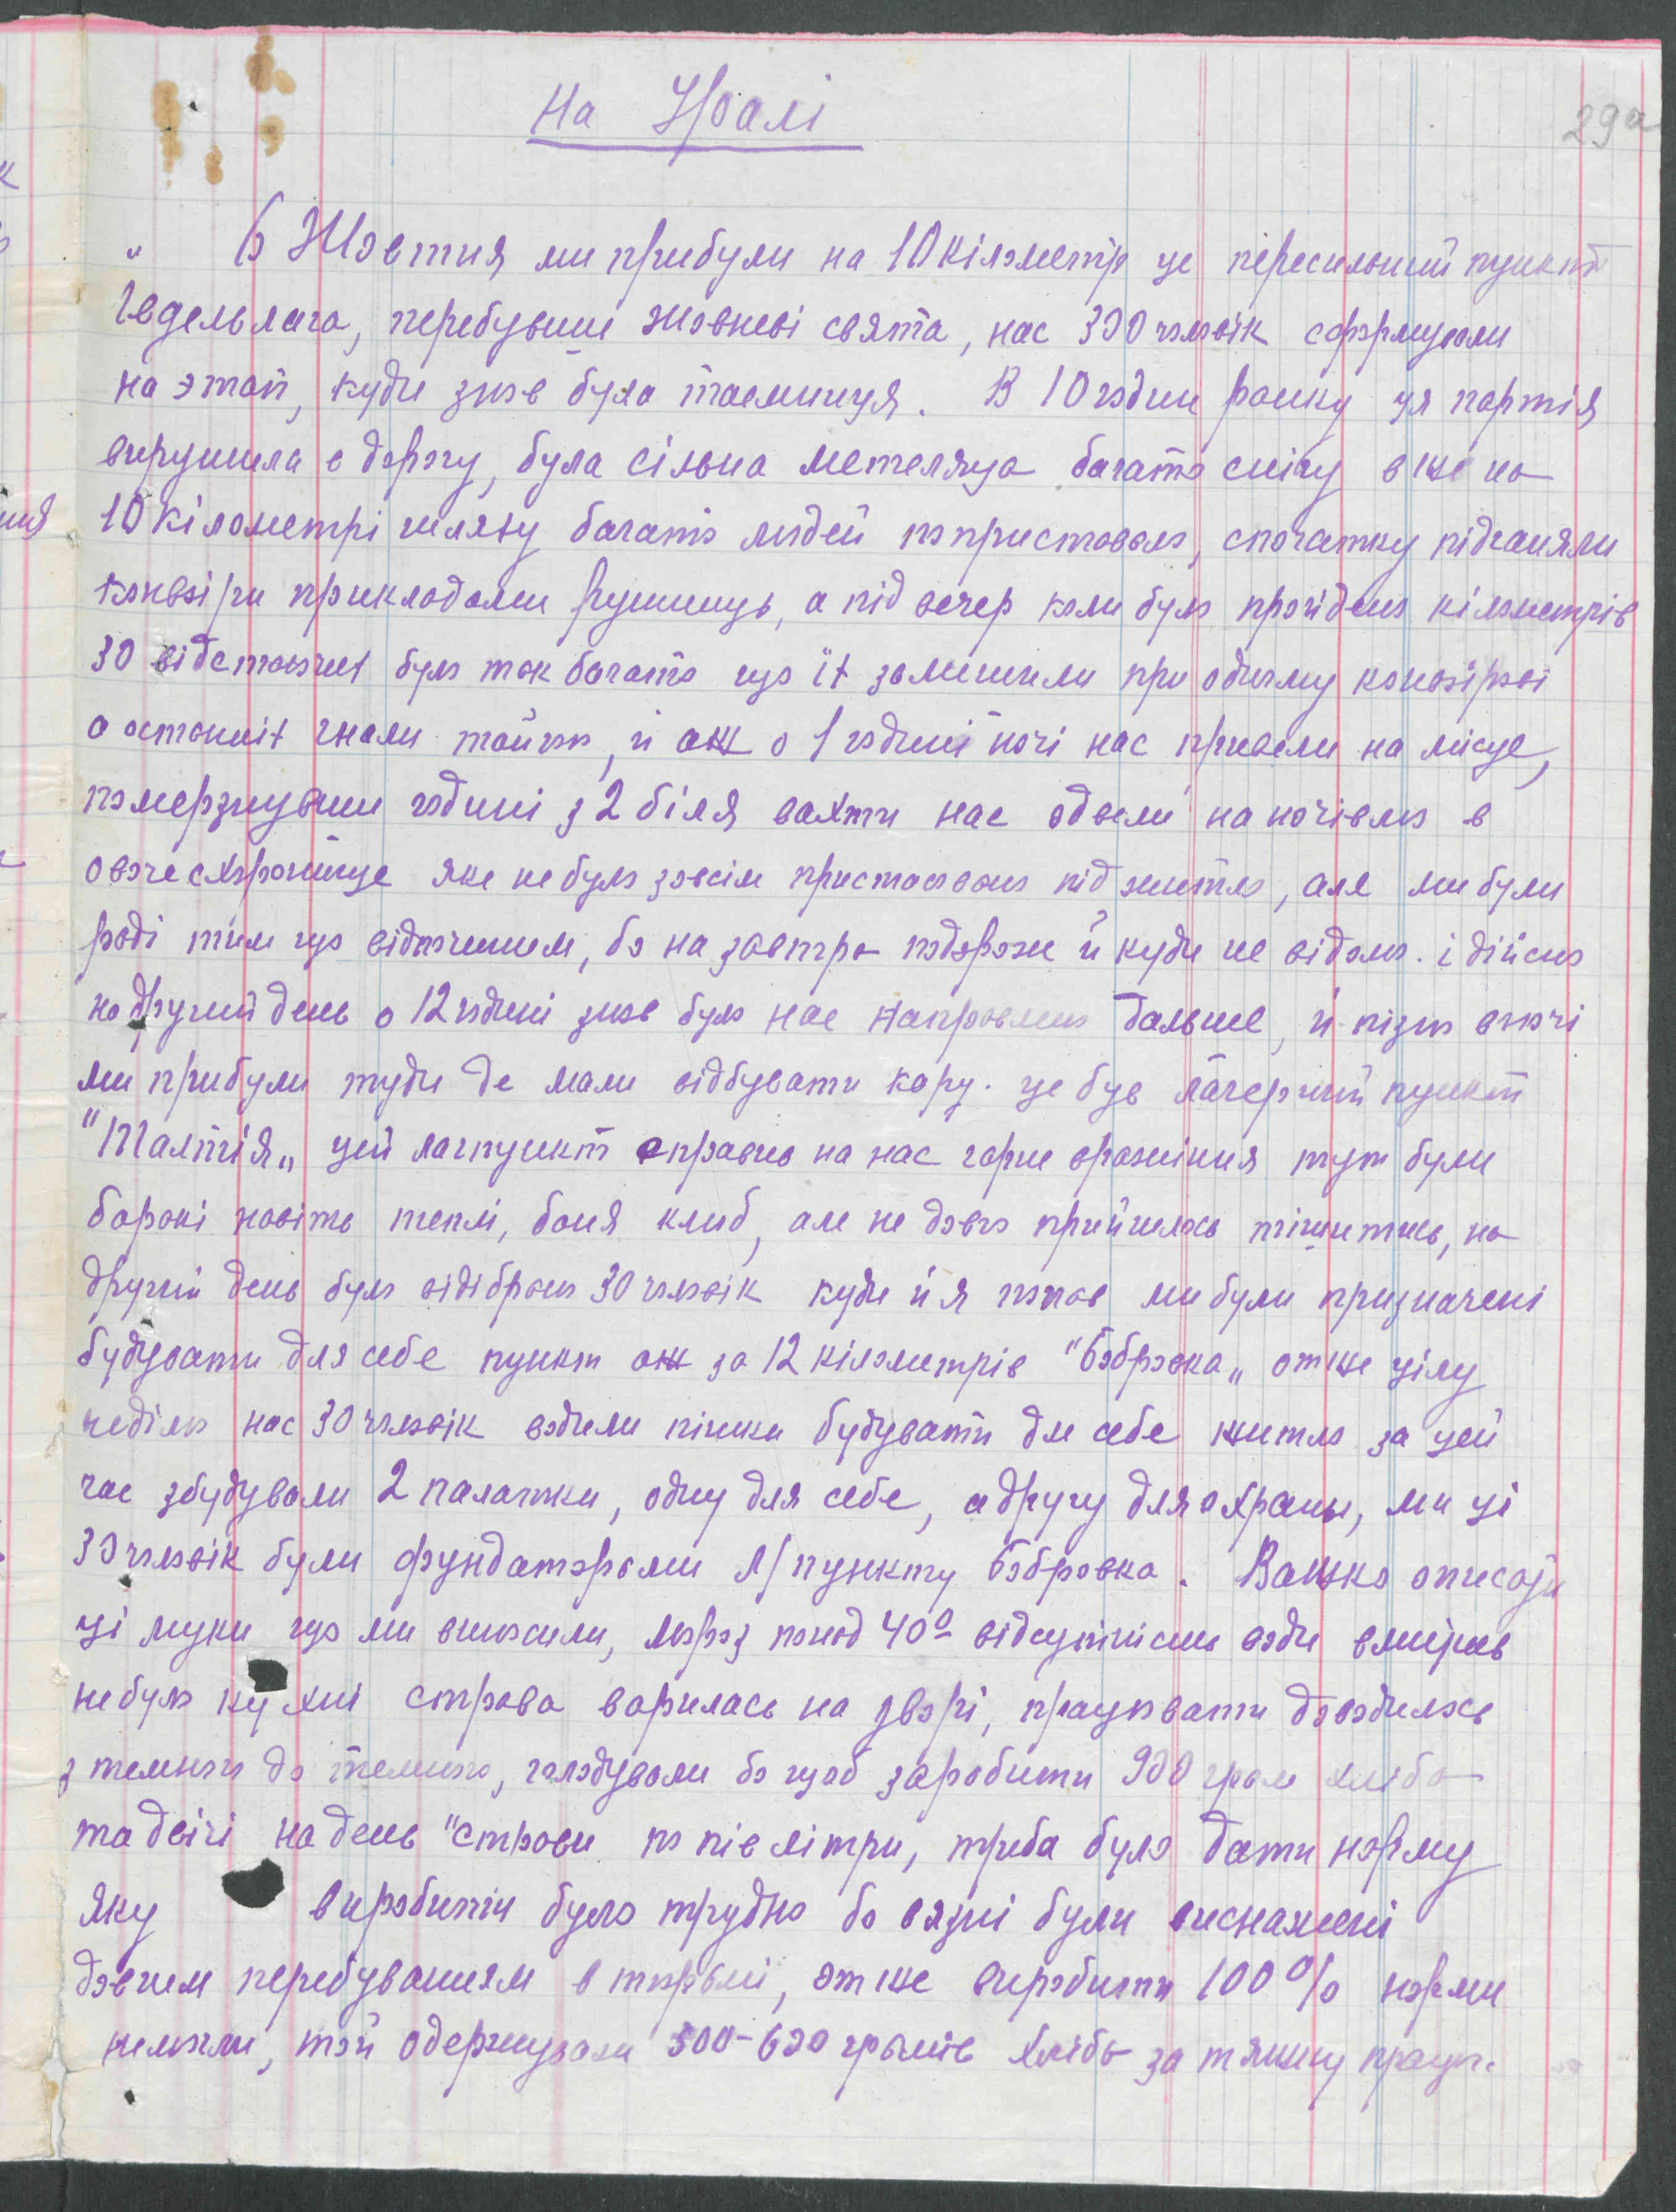 На Уралі
29а
" 6 Жовтня ми прибули на 10 кілометр це пересильний пункт
Івдельлага, перебувши жовтневі свята, нас 300 чоловік сформували
на этап, куди знов була таємниця. В 10 годин ранку ця партія
вирушила в дорогу, була сільна метелиця багато снігу вже на
10 кілометрі шляху багато людей попристовало, спочатку підганяли
конвоіри прикладами рушниць, а під вечер коли було пройдено кілометрів
30 відстаючих було так багато що їх залишили при одному конвоірові
а останніх гнали також, й аж о 1 годині ночі нас привели на місце,
померзнувши годині з 2 біля вахти нас одвели на ночівлю в
овочесхронище яке не було зовсім пристосовано під життя, але ми були
раді тим що відпочинем, бо на завтра подорож й куди не відомо. і дійсно
на другий день о 12 годині знов було нас направлено дальше, й пізно вночі
ми прибули туди де мали відбувати кару. це був лагерний пункт
"Талтія„ цей лагпункт справив на нас гарне враження тут були
бараки навіть теплі, баня клюб, але не довго прийшлось тішитись, на
другий день було відібрано 30 чоловік куди й я попав ми були призначені
будувати для себе пункт аж за 12 кілометрів "Бобровка„ отже цілу
неділю нас 30 чоловік водили пішки будувати для себе житло за цей
час збудували 2 палатки, одну для себе, а другу для охраны, ми ці
30 чоловік були фундаторами л/пункту Бобровка. Важко описати
ці муки що ми виносили, мороз понад 40° відсутність води вмірав
не було кухні страва варилась на дворі, працювати доводилось
з темного до темного, голодували бо щоб заробити 900 грам хліба
та двічі на день "страви по пів літри, треба було дати норму
яку виробити було трудно бо вязні були виснажені
довгим перебуванням в тюрьмі, отже виробити 100% норми
не могли, той одержували 500-600 грамів хліба за тяжку працю.